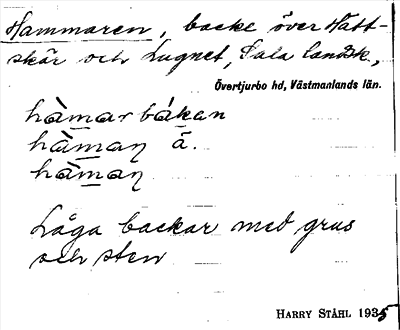 Hammaren, backe över Hatt-
skär och Lugnet, Sala landsk,
Övertjurbo hd, Västmanlands län.
hàmar bákan
hàmaŋ á.
hàmaŋ
Låga backar med grus
och sten
HARRY STÅHL 1935